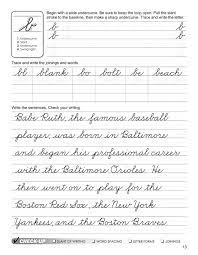 Begin with a slide undercurve. Be sure to keep the loop open. Pull the slant
stroke to the baseline, then make a sharp undercurve. Trace and write the letter.
b
b b
b b
1 Undercurve
2 Slant
3 Undercurve
4 Swing right
Trace and write the joinings and words.
bl blank bo bolt be beach
Write the sentences. Check your writing.
Babe Ruth, the famous baseball
player, was born in Baltimore
and began his professional career
with the Baltimore Orioles. He
then went on to play for the
Boston Red Sox, the New York
Yankees, and the Boston Braves.
CHECK-UP SLANT OF WRITING WORD SPACING LETTER FORMS JOININGS